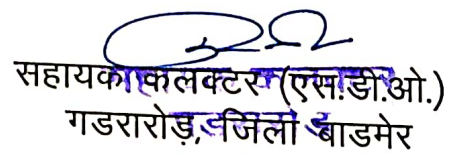 सहायक कलक्टर (एस.डी.ओ.)
गडरारोड़, जिला बाडमेर